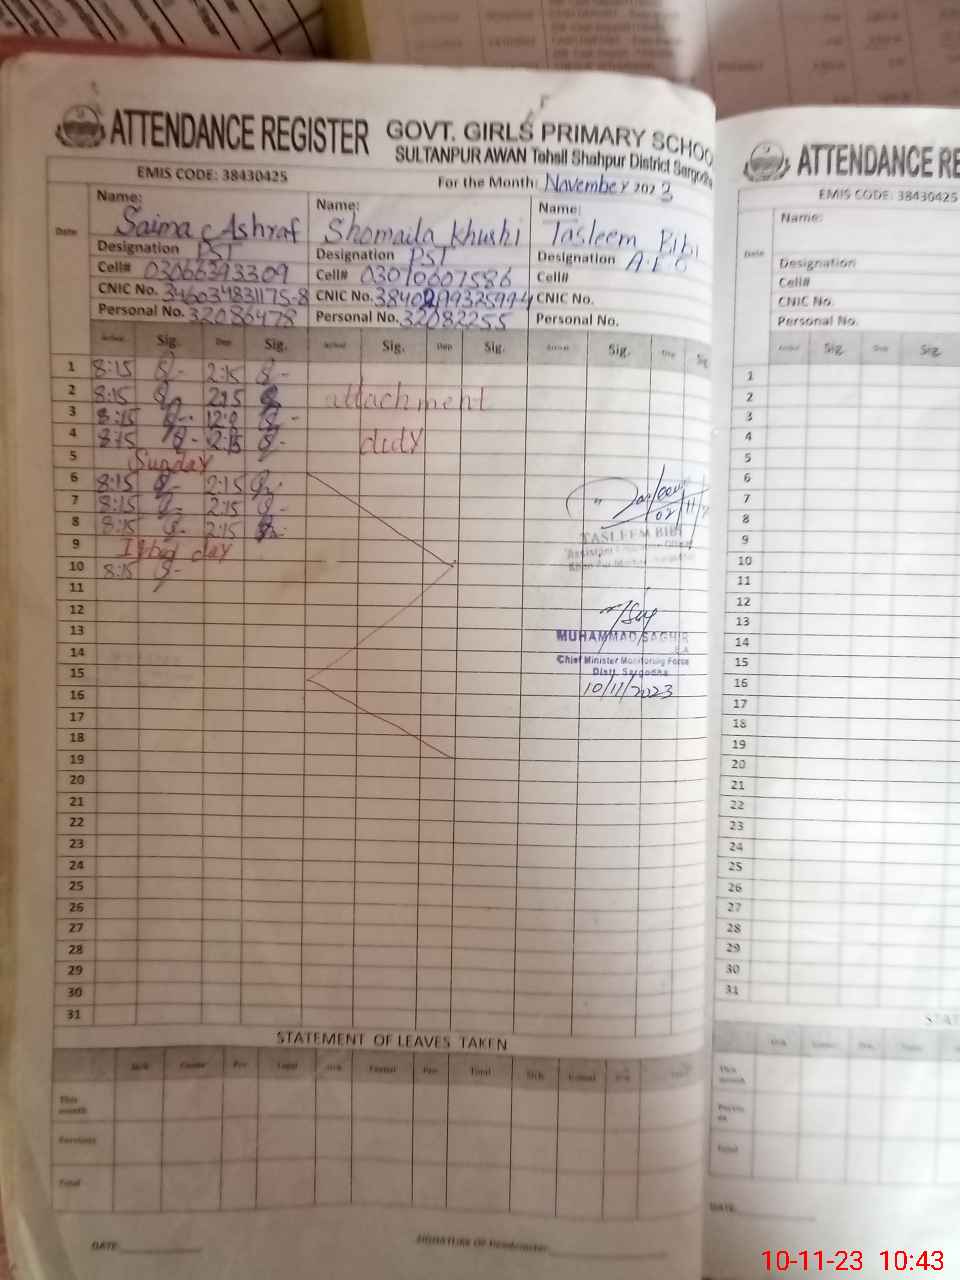 ATTENDANCE REGISTER
GOVT. GIRLS PRIMARY SCHOO
SULTANPUR AWAN Tehsil Shahpur District Sargodha
EMIS CODE: 38430425
For the Month: November 2023
Date
Name: Saima Ashraf
Designation PST
Cell# 03066393309
CNIC No. 346034831175-8
Personal No. 32086478
Name: Shomaila Khushi
Designation PST
Cell# 03010607586
CNIC No.
Personal No. 32082255
Name: Tasleem Bibi
Designation
Cell#
CNIC No.
Personal No.
Arrival Sig. Dep Sig. Arrival Sig. Dep Sig. Arrival Sig. Dep Sig
1 8:15 2:15
2 8:15 2:15 attachment
3 8:15
4 8:15 2:15 duty
5 Sunday
6 8:15 2:15
7 8:15 2:15
8 8:15 2:15
9 Iqbal day
10 8:15
11
12
13
14
15
16
17
18
19
20
21
22
23
24
25
26
27
28
29
30
31
Tasleem
02/11/
TASLEEM BIBI
Assistant
MUHAMMAD SAGHIR
Chief Minister Monitoring Force
Distt. Sargodha
10/11/2023
STATEMENT OF LEAVES TAKEN
This month
Previous
Total
DATE:
SIGNATURE OF Headmaster
ATTENDANCE RE
EMIS CODE: 38430425
Date
Name:
Designation
Cell#
CNIC No.
Personal No.
Arrival Sig. Dep Sig.
1
2
3
4
5
6
7
8
9
10
11
12
13
14
15
16
17
18
19
20
21
22
23
24
25
26
27
28
29
30
31
STAT
This month
Total
DATE:
10-11-23 10:43